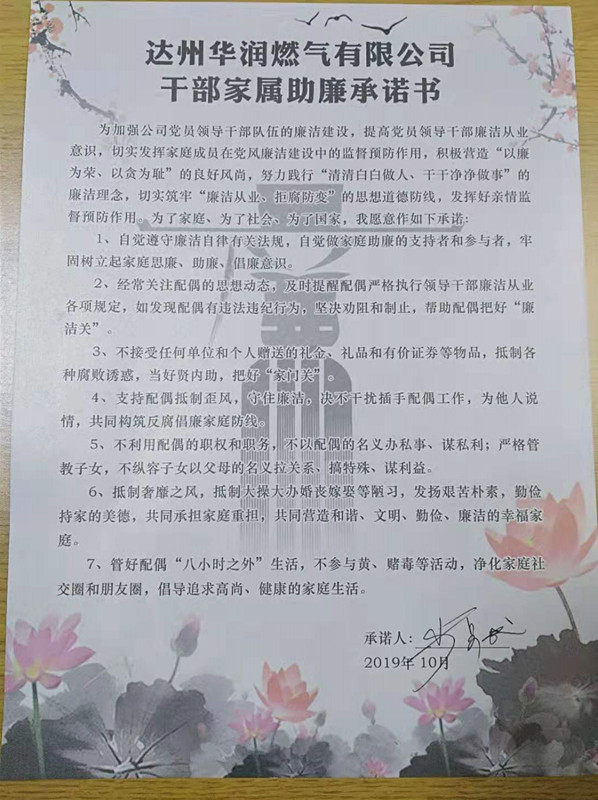 达州华润燃气有限公司
干部家属助廉承诺书
为加强公司党员领导干部队伍的廉洁建设，提高党员领导干部廉洁从业
意识，切实发挥家庭成员在党风廉洁建设中的监督预防作用，积极营造“以廉
为荣、以贪为耻”的良好风尚，努力践行“清清白白做人、干干净净做事”的
廉洁理念，切实筑牢“廉洁从业、拒腐防变”的思想道德防线，发挥好亲情监
督预防作用。为了家庭、为了社会、为了国家，我愿意作如下承诺：
1、自觉遵守廉洁自律有关法规，自觉做家庭助廉的支持者和参与者，牢
固树立起家庭思廉、助廉、倡廉意识。
2、经常关注配偶的思想动态，及时提醒配偶严格执行领导干部廉洁从业
各项规定，如发现配偶有违法违纪行为，坚决劝阻和制止，帮助配偶把好“廉
洁关”。
3、不接受任何单位和个人赠送的礼金、礼品和有价证券等物品，抵制各
种腐败诱惑，当好贤内助，把好“家门关”。
4、支持配偶抵制歪风，守住廉洁，决不干扰插手配偶工作，为他人说
情，共同构筑反腐倡廉家庭防线。
5、不利用配偶的职权和职务，不以配偶的名义办私事、谋私利；严格管
教子女，不纵容子女以父母的名义拉关系、搞特殊、谋利益。
6、抵制奢靡之风，抵制大操大办婚丧嫁娶等陋习，发扬艰苦朴素，勤俭
持家的美德，共同承担家庭重担，共同营造和谐、文明、勤俭、廉洁的幸福家
庭。
7、管好配偶“八小时之外”生活，不参与黄、赌毒等活动，净化家庭社
交圈和朋友圈，倡导追求高尚、健康的家庭生活。
承诺人：
2019年10月